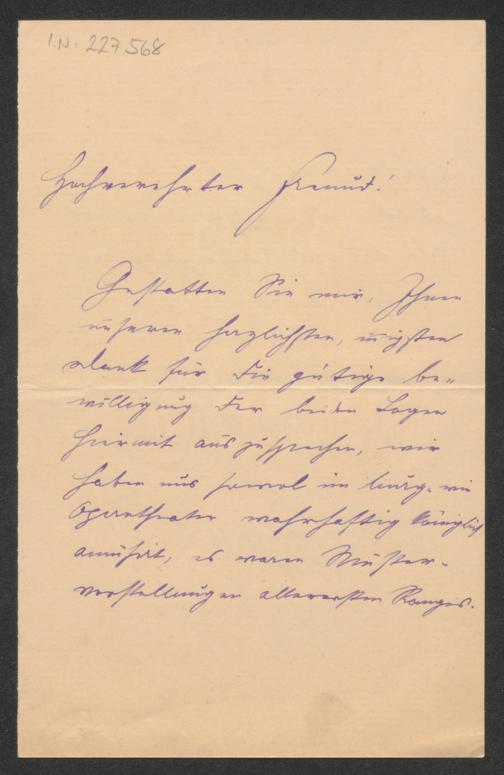 I.N. 227.568
Hochverehrter Freund!
Gestatten Sie mir, Ihnen
unseren herzlichsten, innigsten
Dank für die gütige Be-
willigung der beiden Logen
hiermit auszusprechen, wir
haben uns sowol im Burg- wie
Operntheater wahrhaftig königlich
amüsirt, es waren Muster-
vorstellungen allerersten Ranges.